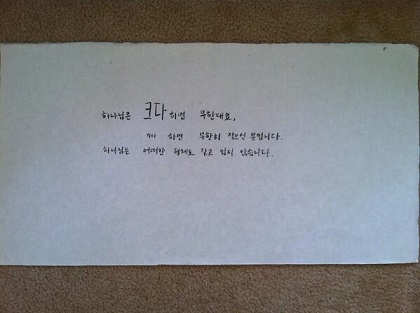 하나님은 크다 하면 무한대요,
하면 무한히 작으신 분입니다.
하나님은 어떠한 형체도 갖고 있지 않습니다.